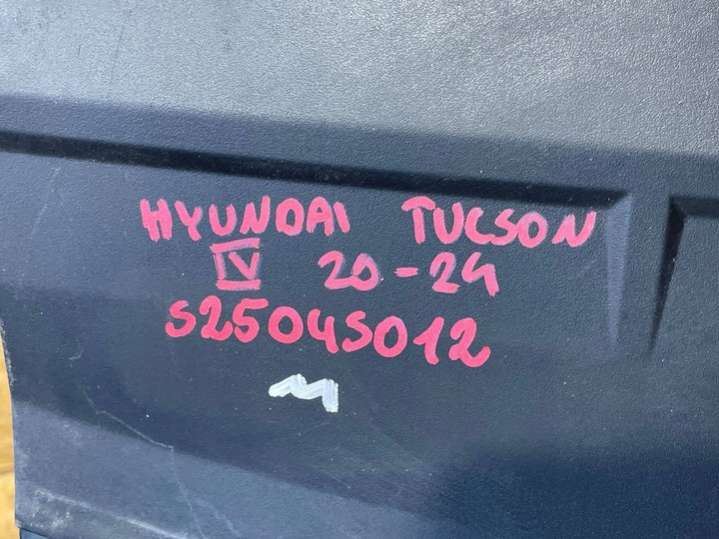 HYUNDAI TUCSON
IV 20-24
S2504S012
M